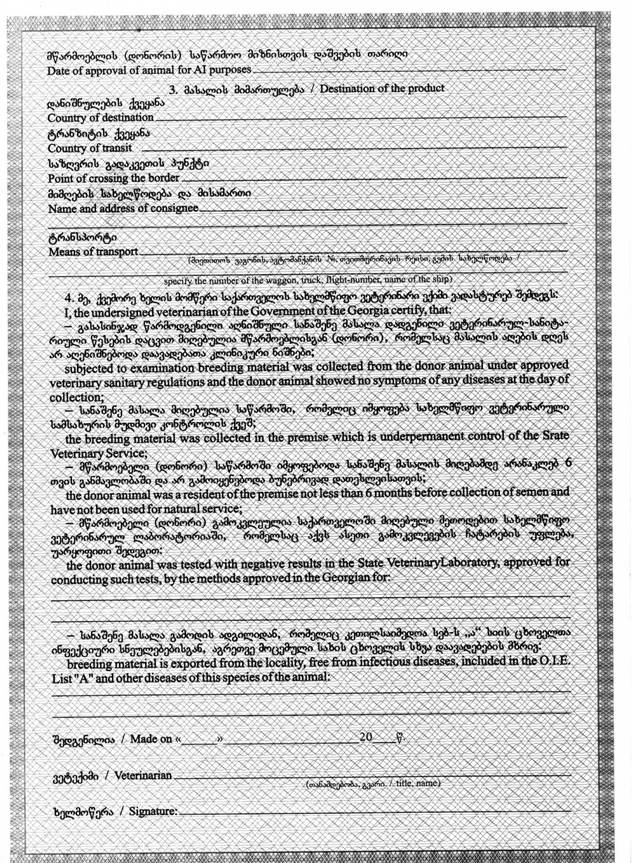 მწარმოებლის (დონორის) საწარმოო მიზნისთვის დაშვების თარიღი
Date of approval of animal for AI purposes
3. მასალის მიმართულება / Destination of the product
დანიშნულების ქვეყანა
Country of destination
ტრანზიტის ქვეყანა
Country of transit
საზღვრის გადაკვეთის პუნქტი
Point of crossing the border
მიმღების სახელწოდება და მისამართი
Name and address of consignee
ტრანსპორტი
Means of transport
(მიეთითოს ვაგონის, ავტომანქანის №, თვითმფრინავის რეისი, გემის სახელწოდება /
specify the number of the waggon, truck, flight-number, name of the ship)
4. მე, ქვემორე ხელის მომწერი საქართველოს სახელმწიფო ვეტერინარი ვადასტურებ შემდეგს:
I, the undersigned veterinarian of the Government of the Georgia certify, that:
– გასასინჯად წარმოდგენილი აღნიშნული სანაშენე მასალა დადგენილი ვეტერინარულ-სანიტა-
რიული წესების დაცვით მიღებულია მწარმოებლისგან (დონორი), რომელსაც მასალის აღების დღეს
არ აღენიშნებოდა დაავადებათა კლინიკური ნიშნები;
subjected to examination breeding material was collected from the donor animal under approved
veterinary sanitary regulations and the donor animal showed no symptoms of any diseases at the day of
collection;
– სანაშენე მასალა მიღებულია საწარმოში, რომელიც იმყოფება სახელმწიფო ვეტერინარული
სამსახურის მუდმივი კონტროლის ქვეშ;
the breeding material was collected in the premise which is underpermanent control of the Srate
Veterinary Service;
– მწარმოებელი (დონორი) საწარმოში იმყოფებოდა სანაშენე მასალის მიღებამდე არანაკლებ 6
თვის განმავლობაში და არ გამოიყენებოდა ბუნებრივად დათესლვისათვის;
the donor animal was a resident of the premise not less than 6 months before collection of semen and
have not been used for natural service;
– მწარმოებელი (დონორი) გამოკვლეულია საქართველოში მიღებული მეთოდებით სახელმწიფო
ვეტერინარულ ლაბორატორიაში, რომელსაც აქვს ასეთი გამოკვლევების ჩატარების უფლება,
უარყოფითი შედეგით:
the donor animal was tested with negative results in the State VeterinaryLaboratory, approved for
conducting such tests, by the methods approved in the Georgian for:
– სანაშენე მასალა გამოდის ადგილიდან, რომელიც კეთილსაიმედოა სებ-ს „ა“ სიის ცხოველთა
ინფექციური სნეულებებისგან, აგრეთვე მოცემული სახის ცხოველის სხვა დაავადებების მხრივ:
breeding material is exported from the locality, free from infectious diseases, included in the O.I.E.
List "A" and other diseases of this species of the animal:
შედგენილია / Made on «______»______20___წ.
ვეტექიმი / Veterinarian
(თანამდებობა, გვარი / title, name)
ხელმოწერა / Signature: